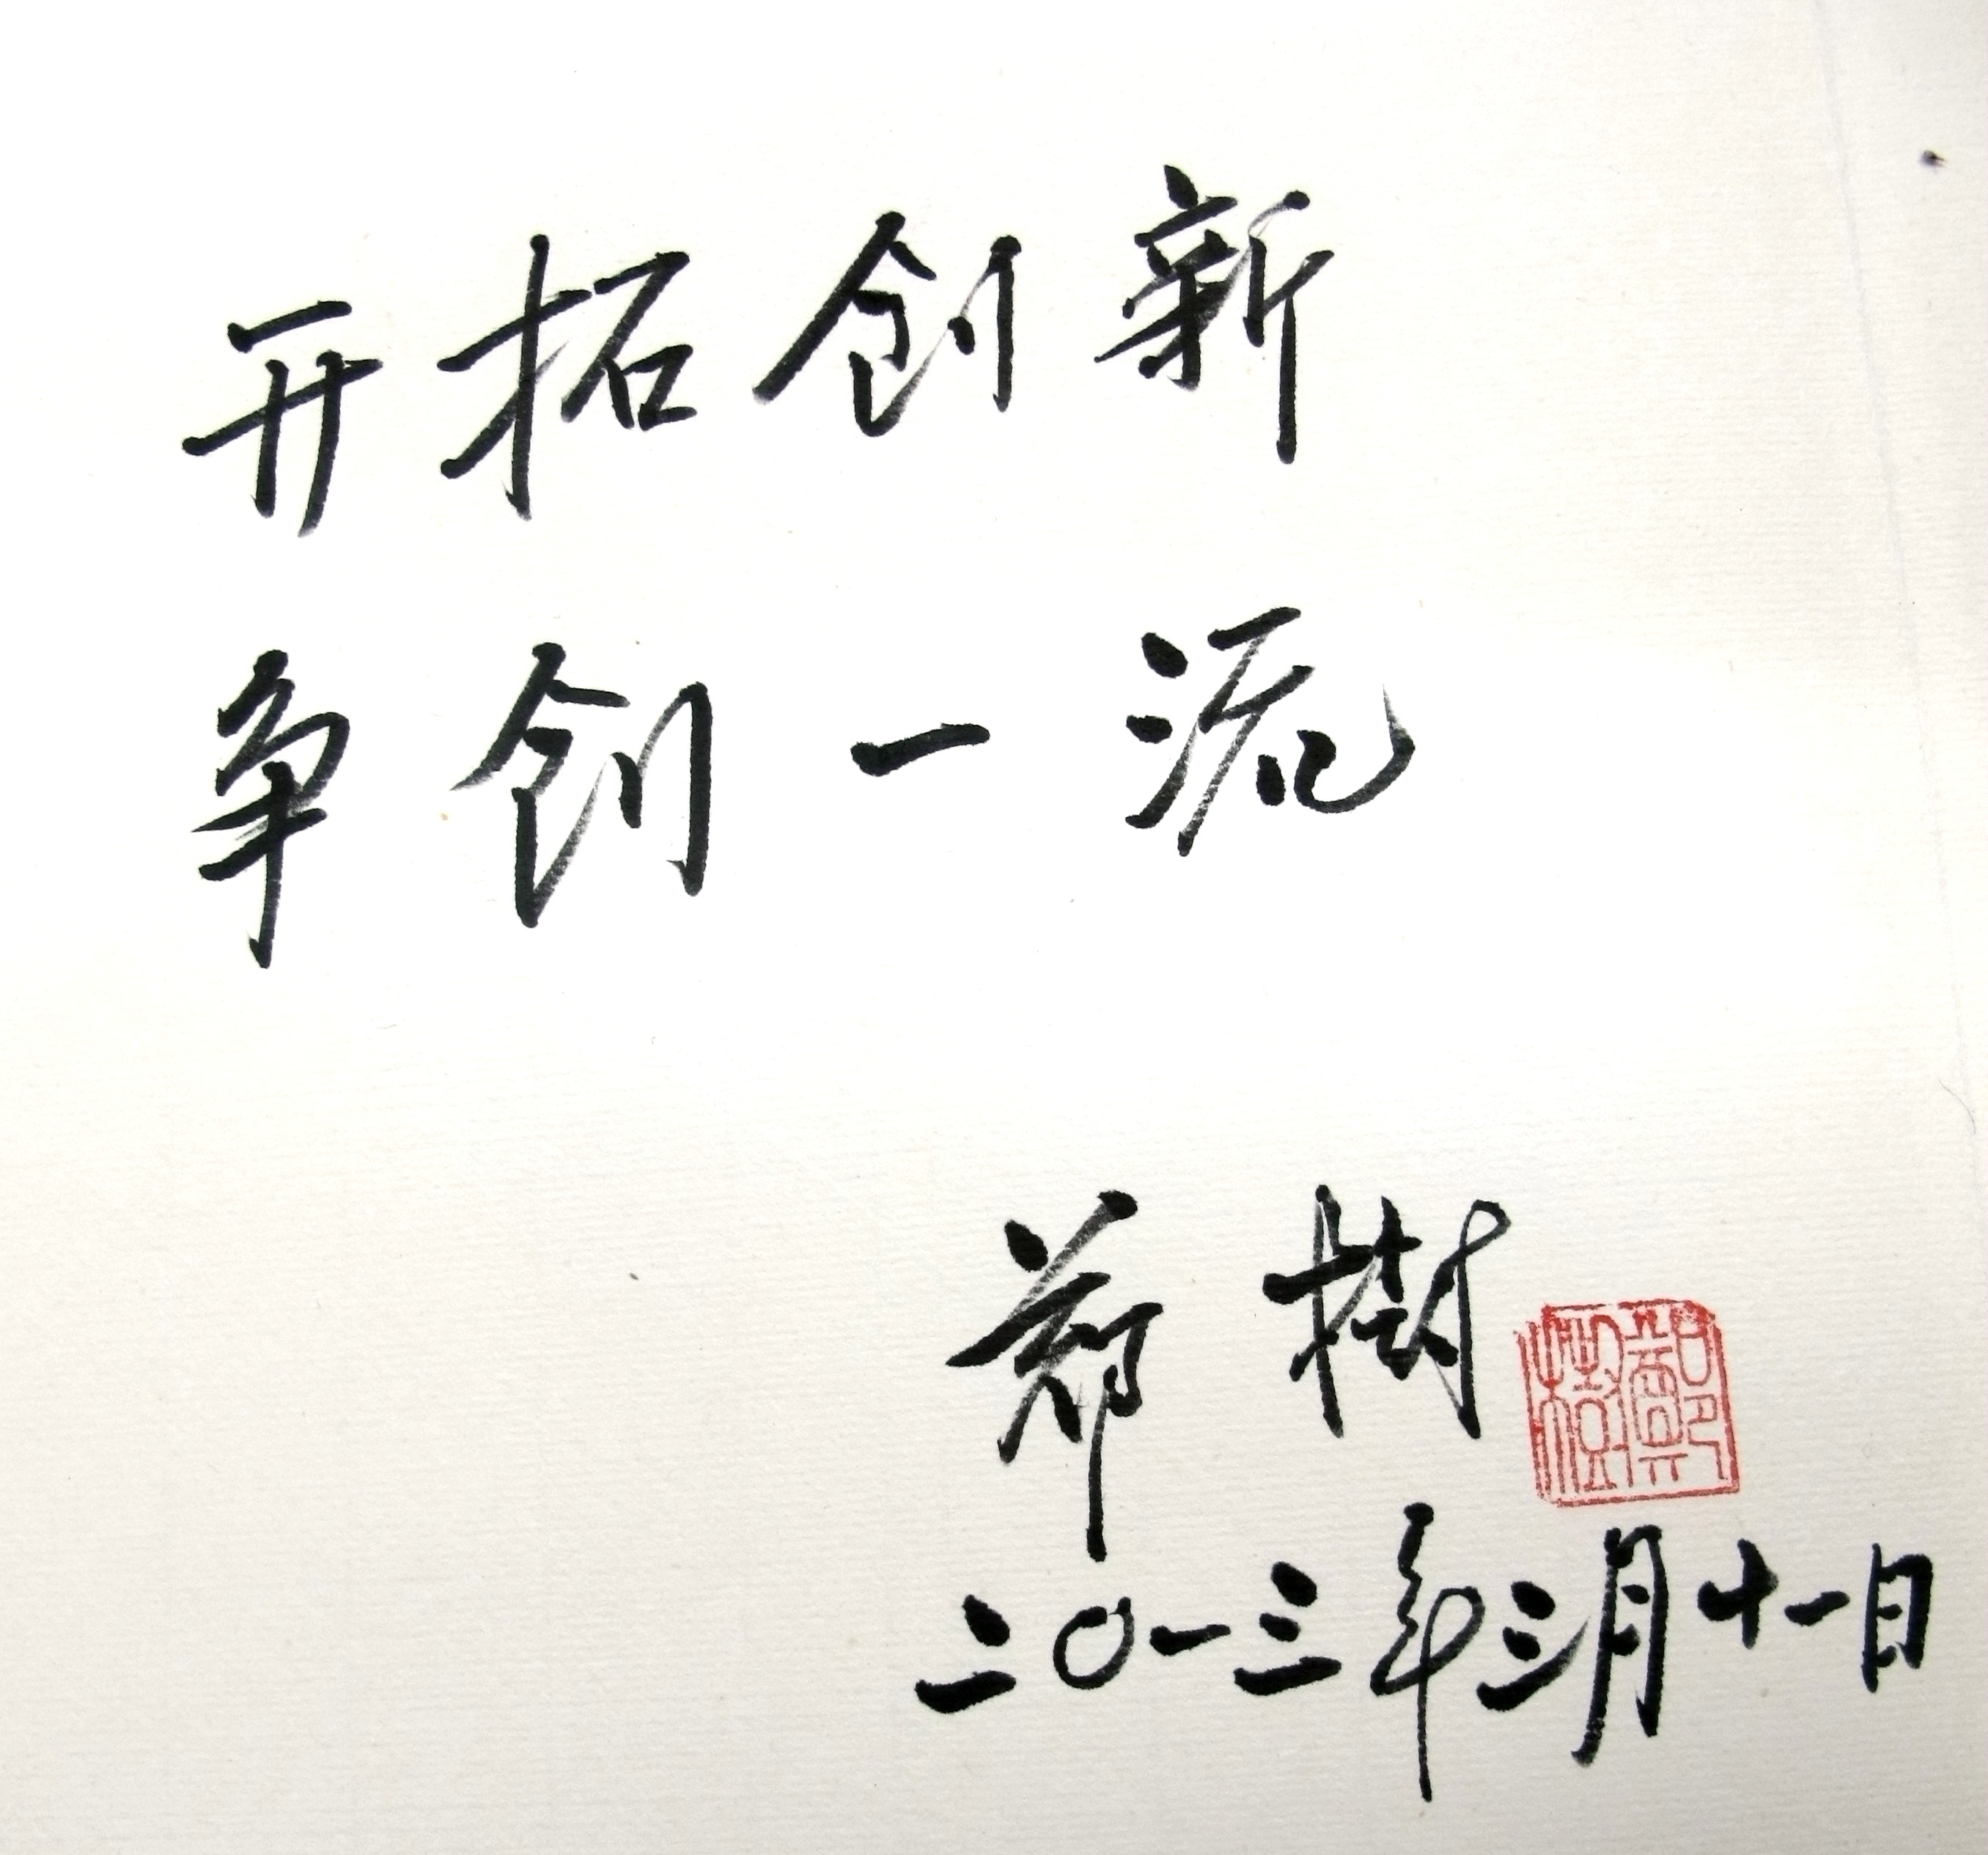 开拓创新
争创一流
郑樹
鄭樹
二〇一三年三月十一日